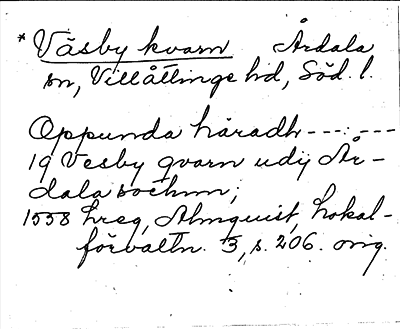 * Väsby kvarn Årdala
sn, Villåttinge hd, Söd. l.
Oppunda häradh ---:---
19 Vesby qvarn udij År-
dala sochnn;
1558 hreg, Almquist, Lokal-
förvaltn. 3, s. 206. orig.